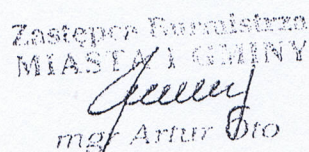 Zastępca Burmistrza
MIASTA I GMINY
mgr Artur Oto